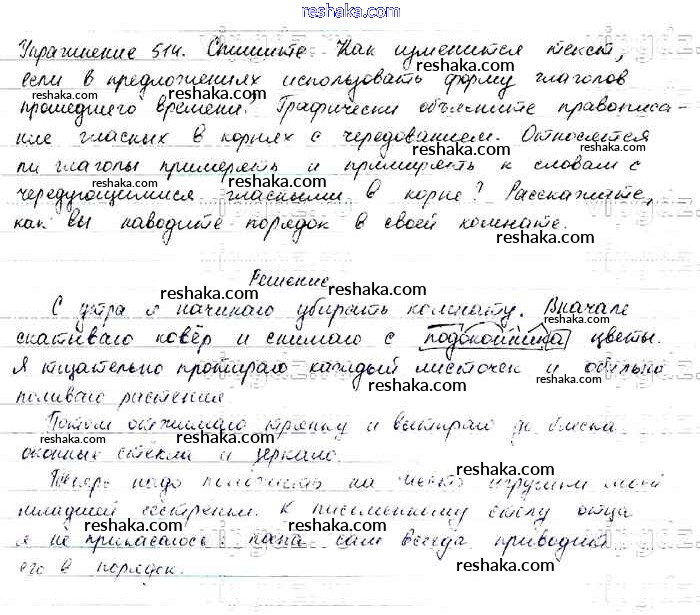 reshaka.com
Упражнение 514. Спишите. Как изменится текст,
если в предложениях использовать форму глаголов
прошедшего времени? Графически объясните правописа-
ние гласных в корнях с чередованием. Относятся
ли глаголы примерять и примирять к словам с
чередующимися гласными в корне? Расскажите,
как вы наводите порядок в своей комнате.
Решение
С утра я начинаю убирать комнату. Вначале
скатываю ковёр и снимаю с подоконника цветы.
Я тщательно протираю каждый листочек и обильно
поливаю растения.
Потом отжимаю тряпку и вытираю до блеска
оконные стёкла и зеркало.
Теперь надо положить на место игрушки моей
младшей сестрёнки. К письменному столу отца
я не прикасаюсь: папа сам всегда приводит
его в порядок.